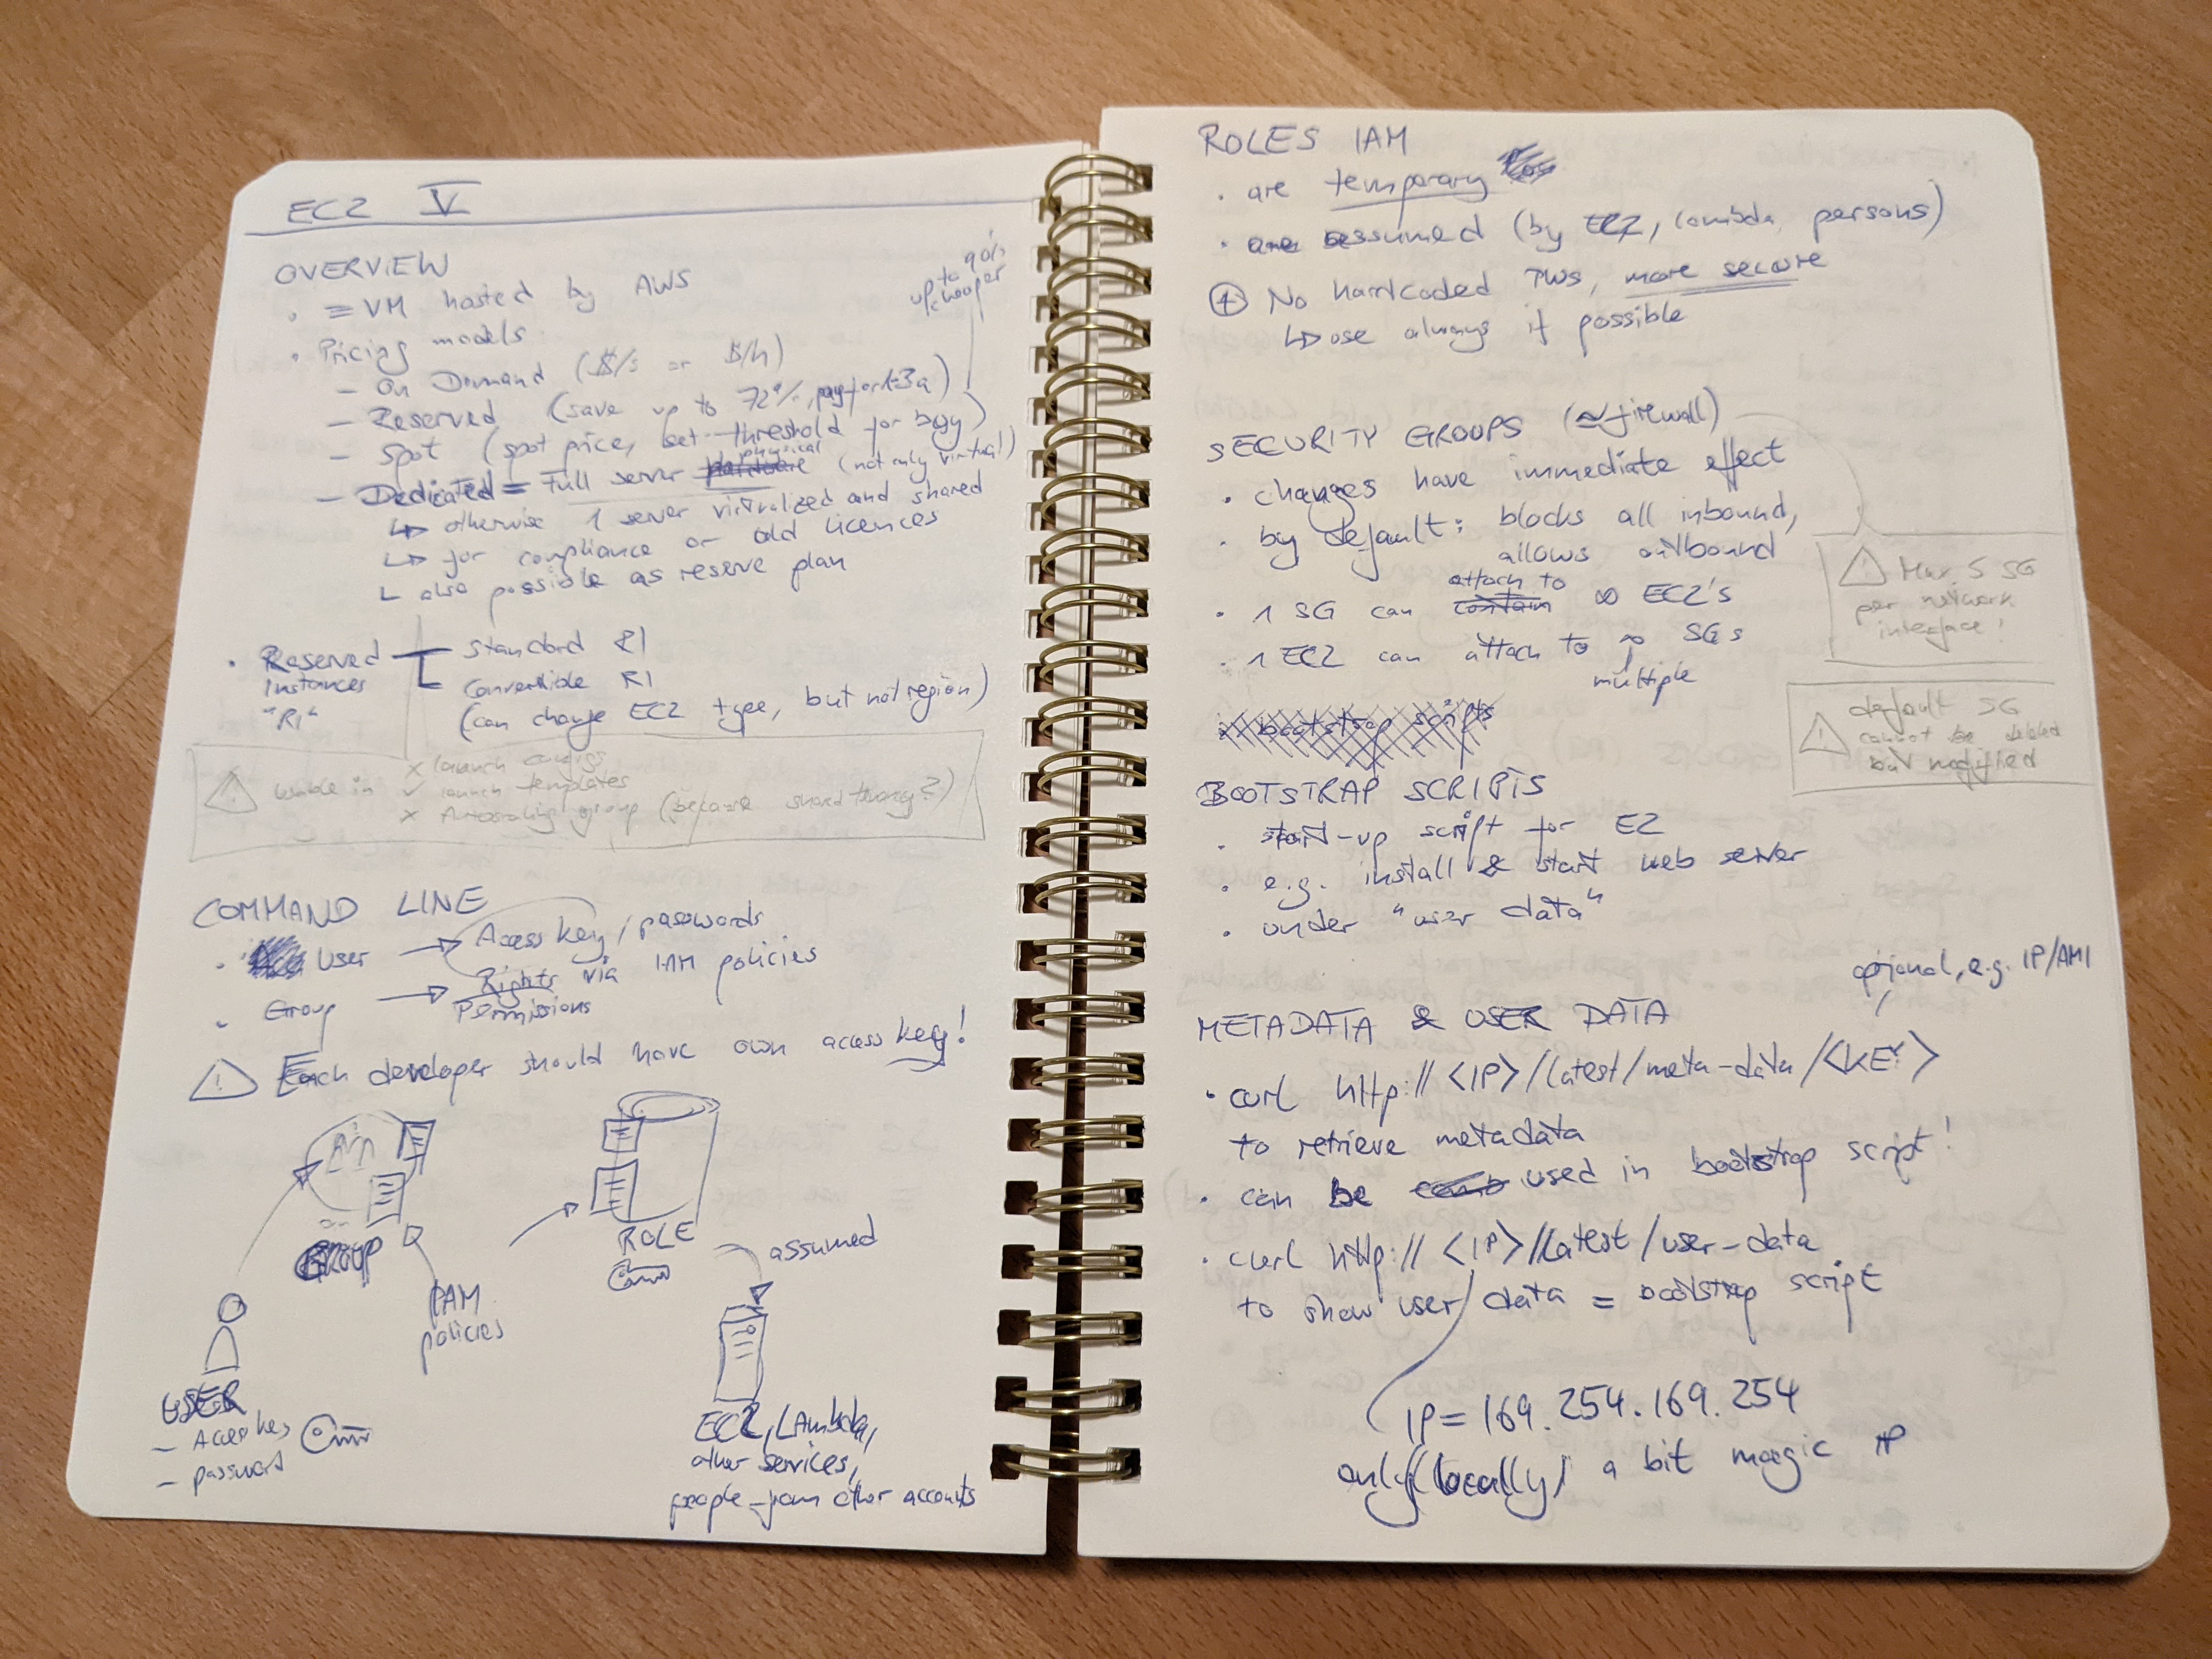 EC2 V
OVERVIEW
• = VM hosted by AWS
up to 90% cheaper
• Pricing models
- On Demand ($/s or $/h)
- Reserved (save up to 72%, pay for 1-3a)
- Spot (spot price, set threshold for buy)
- Dedicated = Full server physical (not only virtual)
↳ otherwise 1 server virtualized and shared
↳ for compliance or old licences
↳ also possible as reserve plan
• Reserved Instances "RI"
Standard RI
Convertible RI
(can change EC2 type, but not region)
⚠ Usable in
x launch configs
✓ launch templates
x Autoscaling group (because shared tenancy?)
COMMAND LINE
• User → Access key / passwords
• Group → Rights via IAM policies
Permissions
⚠ Each developer should have own access key!
GROUP
IAM policies
ROLE
assumed
USER
- Access key
- password
EC2, Lambda,
other services,
people from other accounts
ROLES IAM
• are temporary
• are assumed (by EC2, lambda, persons)
⊕ No hardcoded PWs, more secure
↳ use always if possible
SECURITY GROUPS (≃ firewall)
• changes have immediate effect
• by default: blocks all inbound,
allows outbound
• 1 SG can contain attach to ∞ EC2's
• 1 EC2 can attach to ∞ SGs
multiple
⚠ Max. 5 SG
per network
interface!
⚠ default SG
cannot be deleted
but modified
• bootstrap scripts
BOOTSTRAP SCRIPTS
• start-up script for E2
• e.g. install & start web server
• under "user data"
optional, e.g. IP/AMI
METADATA & USER DATA
• curl http://<IP>/latest/meta-data/<KEY>
to retrieve metadata
• can be used in bootstrap script!
• curl http://<IP>/latest/user-data
to show user data = bootstrap script
IP = 169.254.169.254
only (locally) a bit magic IP